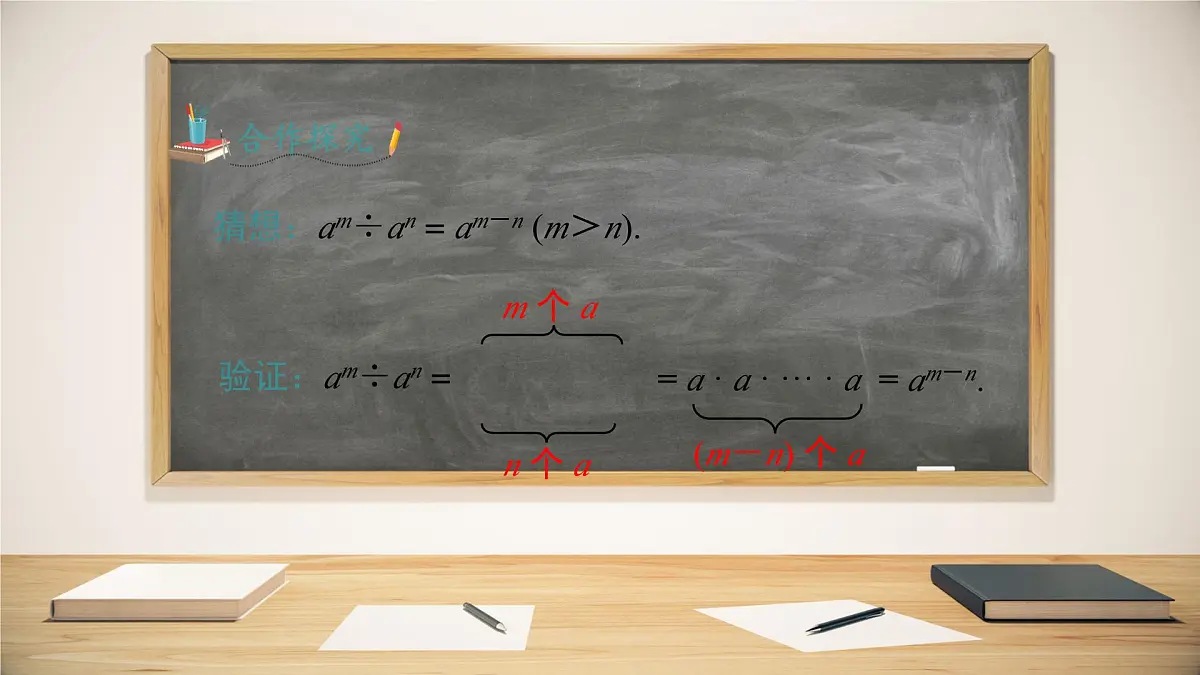 合作探究
猜想：aᵐ÷aⁿ = aᵐ⁻ⁿ (m＞n).
m 个 a
验证：aᵐ÷aⁿ = = a · a · ··· · a = aᵐ⁻ⁿ.
n 个 a (m－n) 个 a